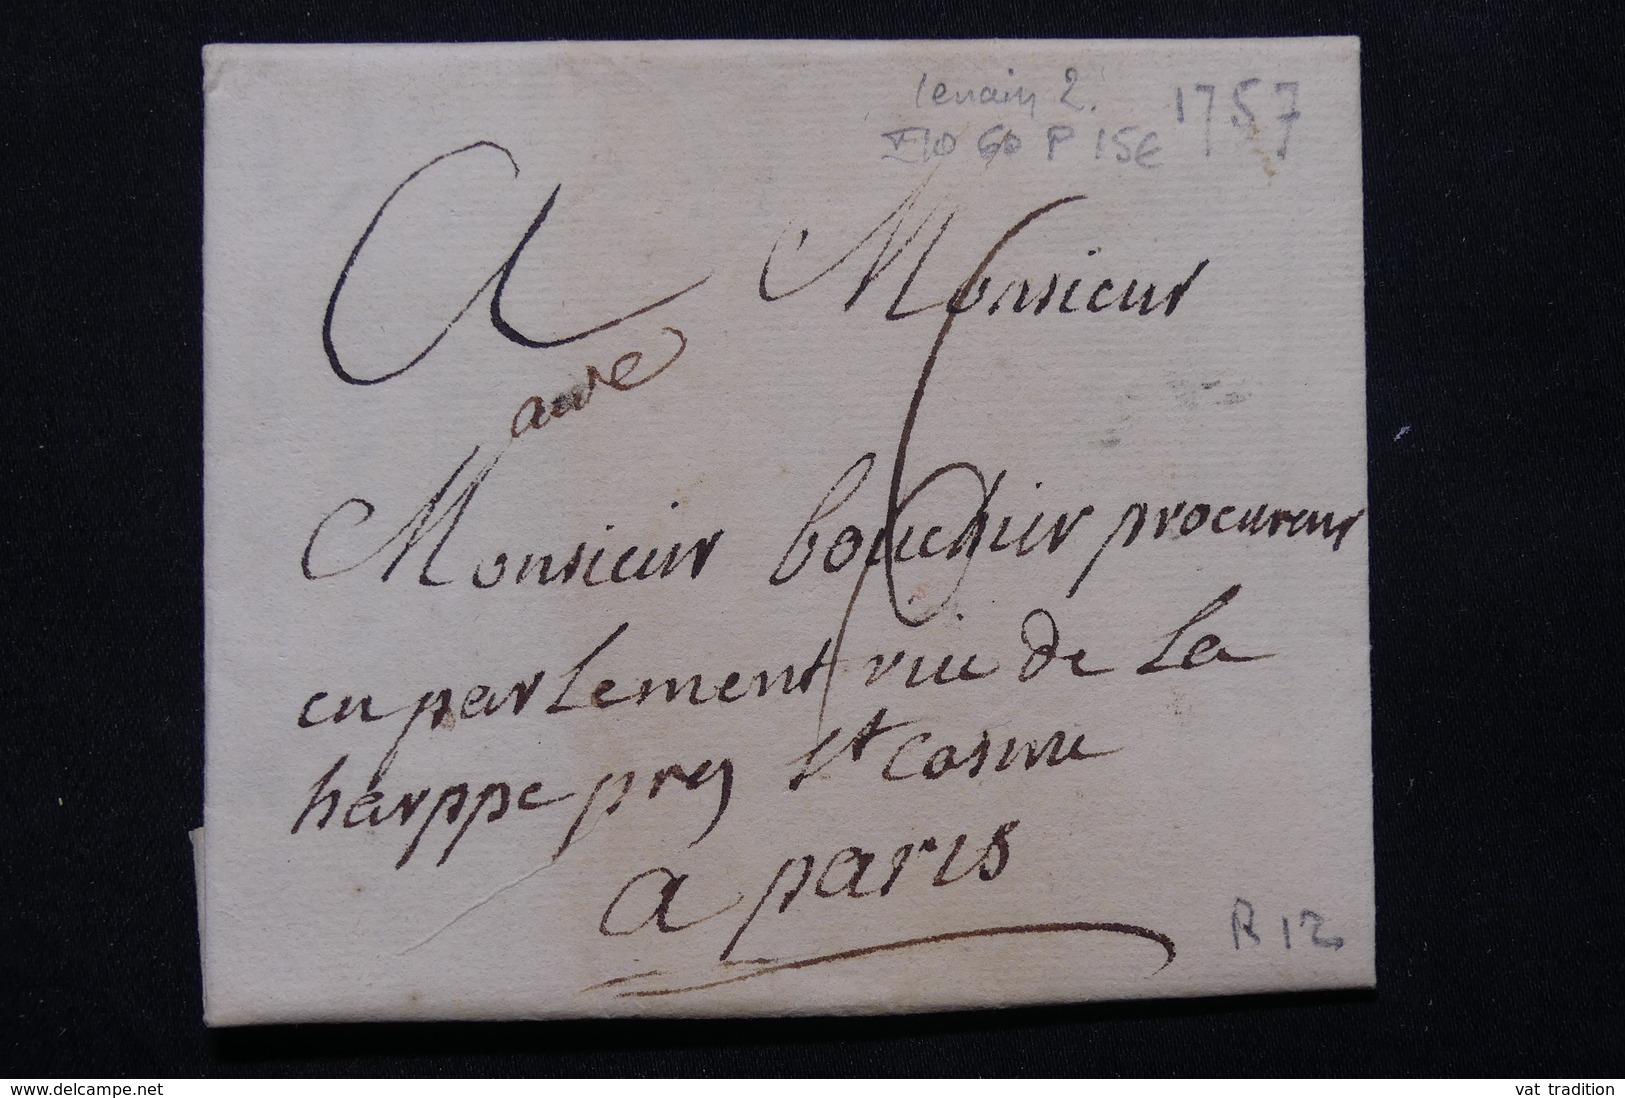 lenain 2.
1757
60 P 15€
A Monsieur
aire
Monsieur bouchir procureur
en parlement rue de la
harppe pres st cosme
a paris
R 12
www.delcampe.net
vat tradition